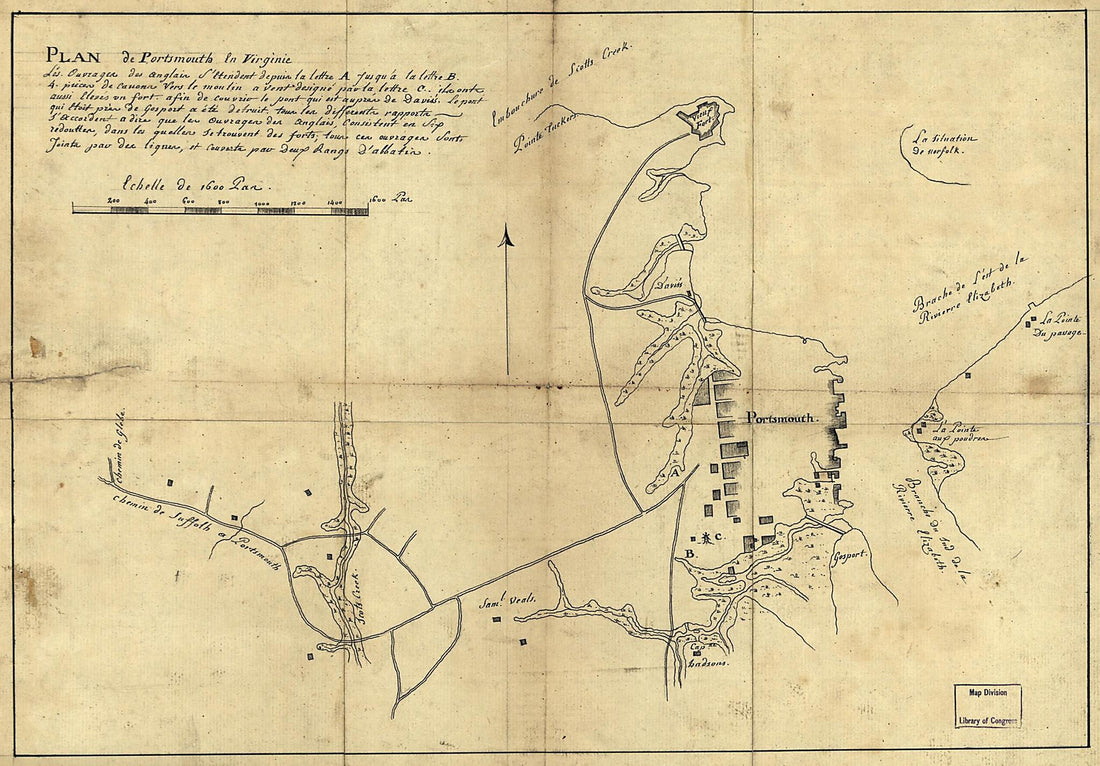 PLAN de Portsmouth En Virginie
Les Ouvrages des Anglais S'Etendent depuis la lettre A Jusqu'à la lettre B.
4. pieces de Canons Vers le moulin a Vent designé par la lettre C. ils ont
aussi Elevés un fort afin de Couvrir le pont qui est auprès de Daviis. Le pont
qui Etoit près de Gosport a été detruit. tous les differents rapports
S'accordent a dire que les Ouvrages des Anglais Consistent en Six
redouttes, dans les quelles Se trouvent des forts; tous ces ouvrages Sont
Joints par des lignes, et Couverts par Deux Rangs D'abbatis.
Echelle de 1600 Pas.
200 400 600 800 1000 1200 1400 1600 Pas
Embouchure de Scotts Creek.
Pointe Tuckers
Vieux
Fort
La Situation
de norfolk.
Daviis
Brache de L'est de la
Rivierre Elizabeth.
La Pointe
Du pavage
Portsmouth.
La Pointe
aux poudres
A
chemin de Glebe.
Chemin de Suffolk a Portsmouth
Scots Creek
C.
B.
Gosport.
Branche du Sud de la
Rivierre Elizabeth.
Sam.l Veals.
Cap
hadsons.
Map Division
Library of Congress